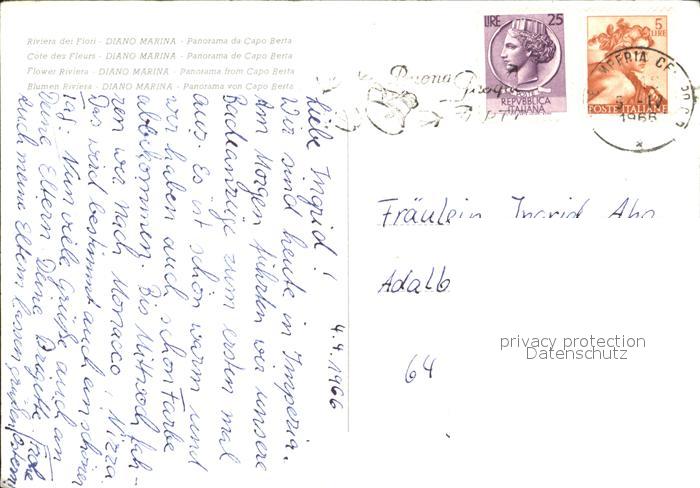 Riviera dei Fiori - DIANO MARINA - Panorama da Capo Berta
Cote des Fleurs - DIANO MARINA - Panorama de Capo Berta
Flower Riviera - DIANO MARINA - Panorama from Capo Berta
Blumen Riviera - DIANO MARINA - Panorama von Capo Berta
4.4.1966
Liebe Ingrid!
Wir sind heute in Imperia.
Am Morgen führten wir unsere
Badeanzüge zum ersten mal
aus. Es ist schön warm und
wir haben auch schon Farbe
abbekommen. Bis Mittwoch fah-
ren wir nach Monacco, Nizza
Das wird bestimmt auch ein schöner
Tag. Nun viele Grüße auch an
Deine Eltern Deine Brigitte
Auch meine Eltern lassen grüßen
Frohe
Ostern
LIRE 25
REPVBBLICA
ITALIANA
5
LIRE
POSTE ITALIANE
Buona
IMPERIA
1966
Fräulein Ingrid
Adalb
64
privacy protection
Datenschutz